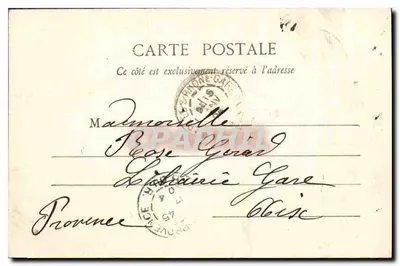 CARTE POSTALE
Ce côté est exclusivement réservé à l'adresse
RHONE-GARE
Mademoiselle
Rose Girard
Librairie Gare
Aix
Provence
PROVENCE